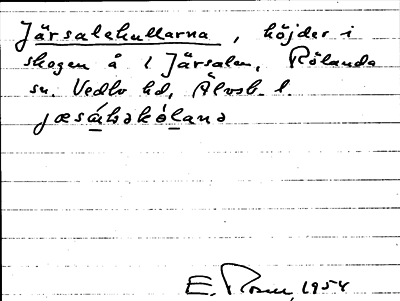 Järsalekullarna, höjder i
skogen å 1 Järsalen, Rölanda
sn. Vedbo hd, Älvsb. l.
E. Rosen, 1954